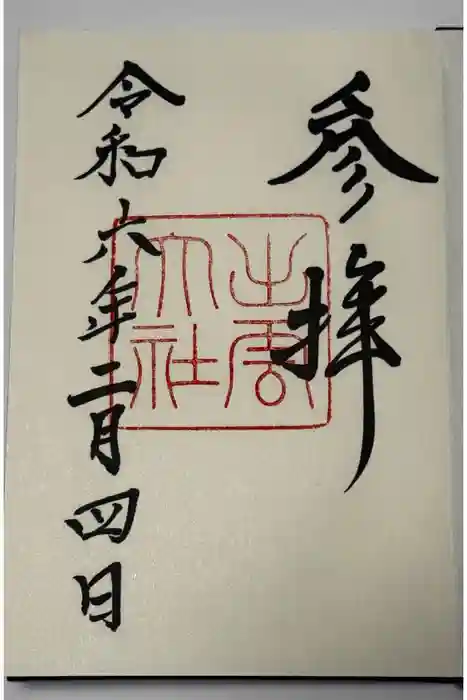 参拝
出雲
大社
令和六年二月四日